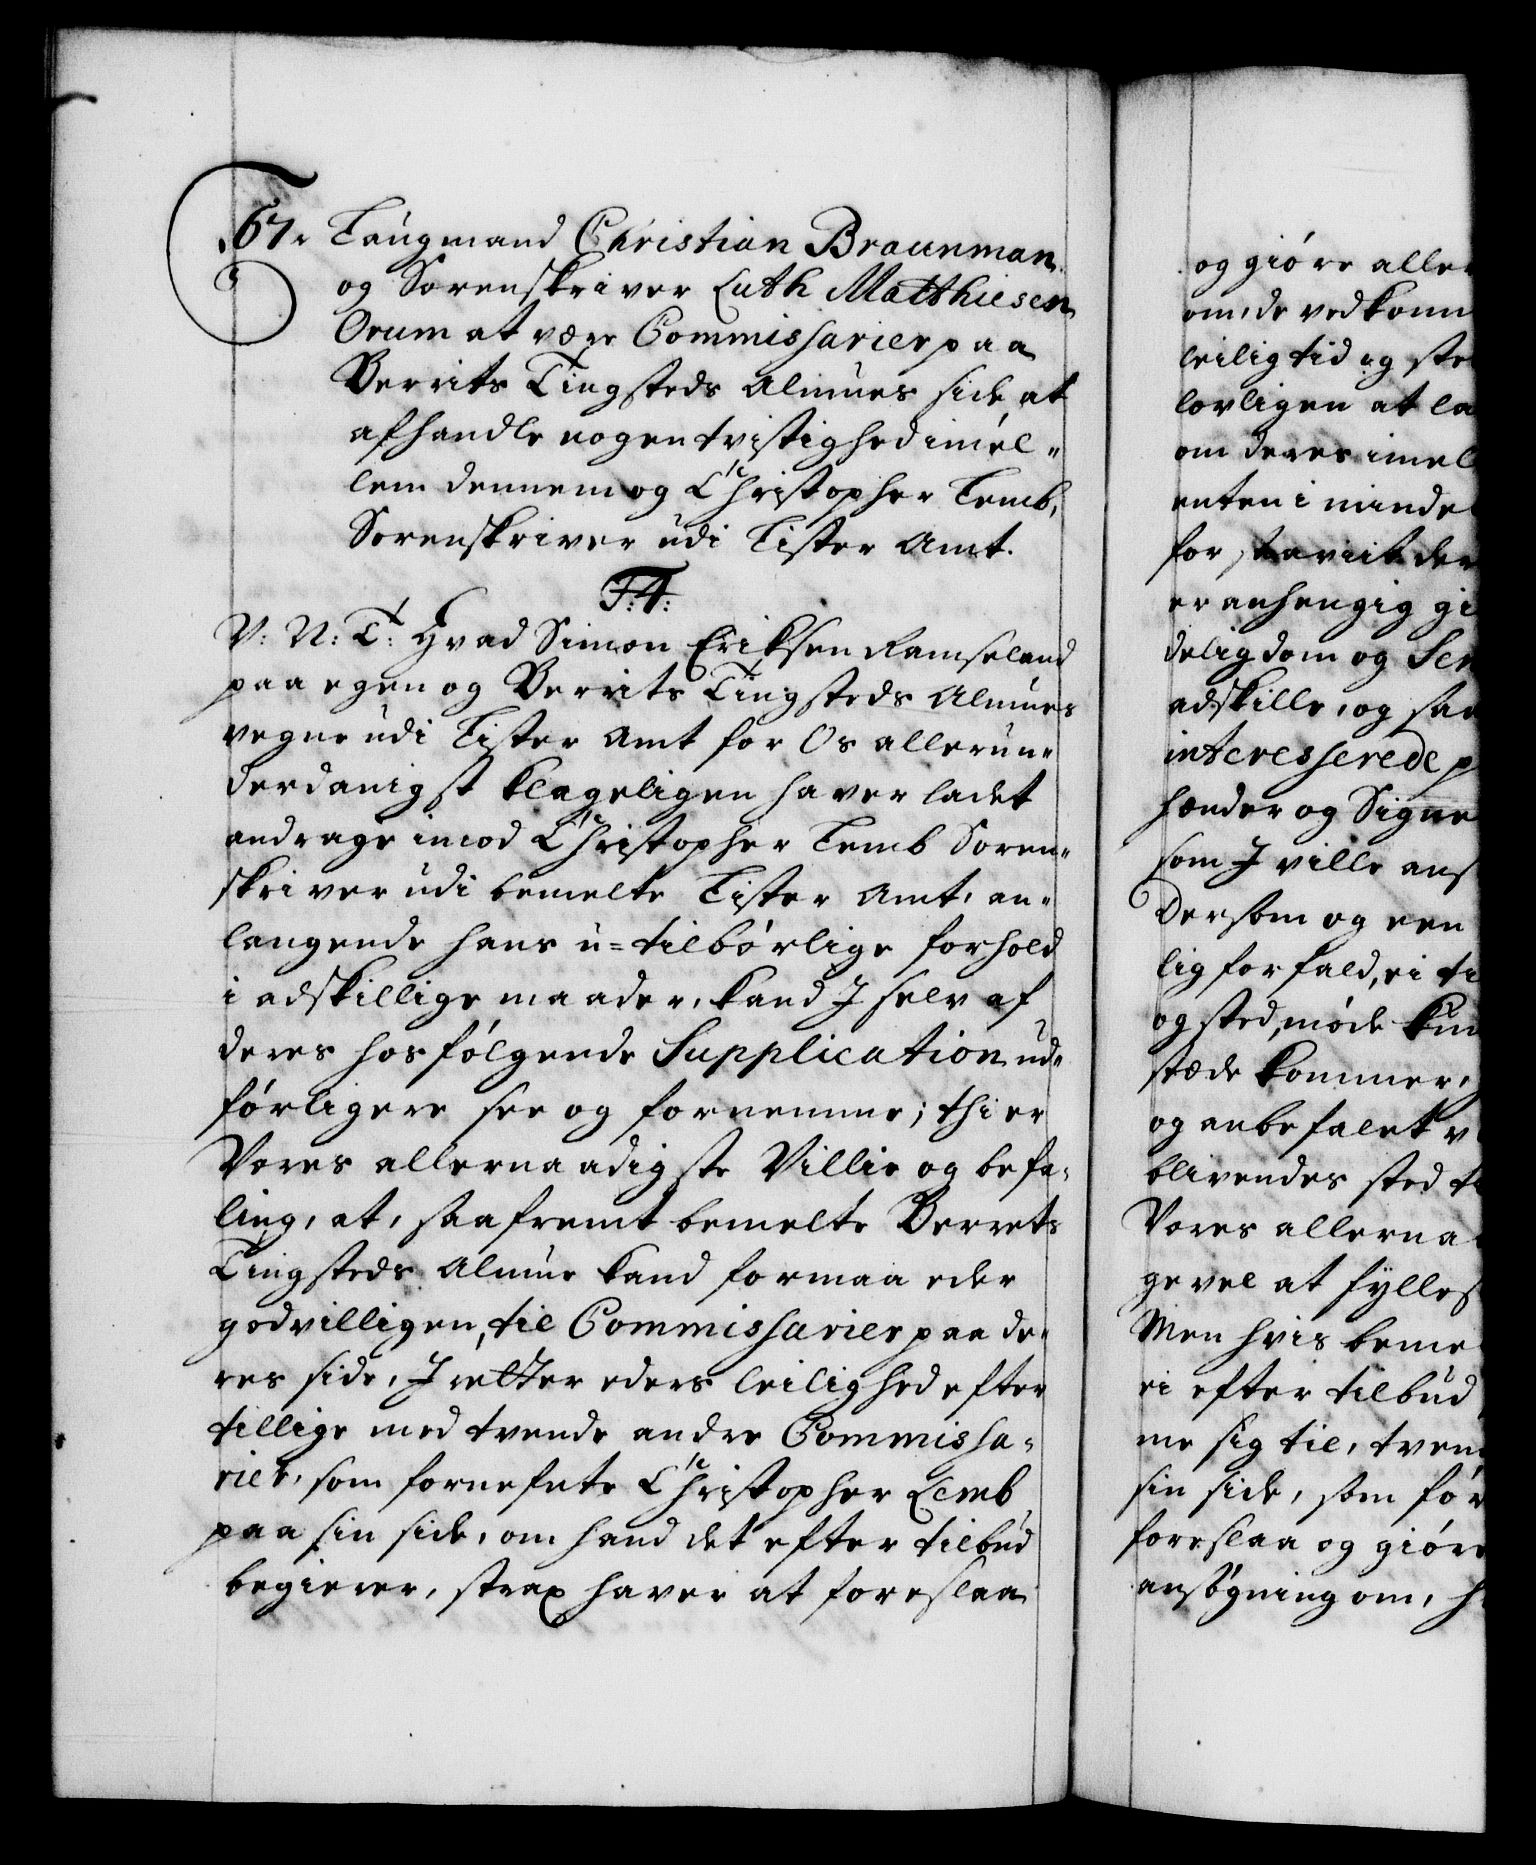 67. Laugmand Christian Braunman
og Sorenskriver Cuth Matthiesen
Orum at være Commissarier paa
Berrits Tingsteds Almues side, at
afhandle nogen tvistighed imel-
lem dennem og Christopher Lemb,
Sorenskriver udi Lister Amt.
F: 4:
V: N: T: Hvad Simon Eriksen Ramseland
paa egen og Berrits Tingsteds Almues
vegne udi Lister Amt for Os allerun-
derdanigst klageligen haver ladet
andrage imod Christopher Lemb Soren-
skriver udi bemelte Lister Amt, an-
langende hans u-tilbørlige forhold
i adskillige maader, kand I selv af
deres hosfølgende Supplication ud-
førligere see og fornemme; thi er
Vores allernaadigste Villie og befa-
ling, at, saafremt bemelte Berrets
Tingsteds Almue kand formaa eder
godvilligen, til Commissarier paa de-
res side, I retter eders leilighed efter
tillige med tvende andre Commissa-
rier, som fornefnte Christopher Lemb
paa sin side, om hand det efter tilbud
begierer, strax haver at foreslaa
og giøre alle
om, de vedkomm
leilig tid og ste
lovligen at la
om deres imel
enten i minde
for
er anhengig gi
delig dom og Sen
adskille, og saa
interesserede p
hænder og Signe
som I ville ans
Dersom og een
lig forfald, ei ti
og sted, møde kun
stæde kommer,
og anbefalet v
blivendes sted t
Vores allerna
gevel at fylles
Men hvis beme
ei efter tilbud
me sig til, tven
sin side, som før
foreslaa og giøre
ansøgning om, h